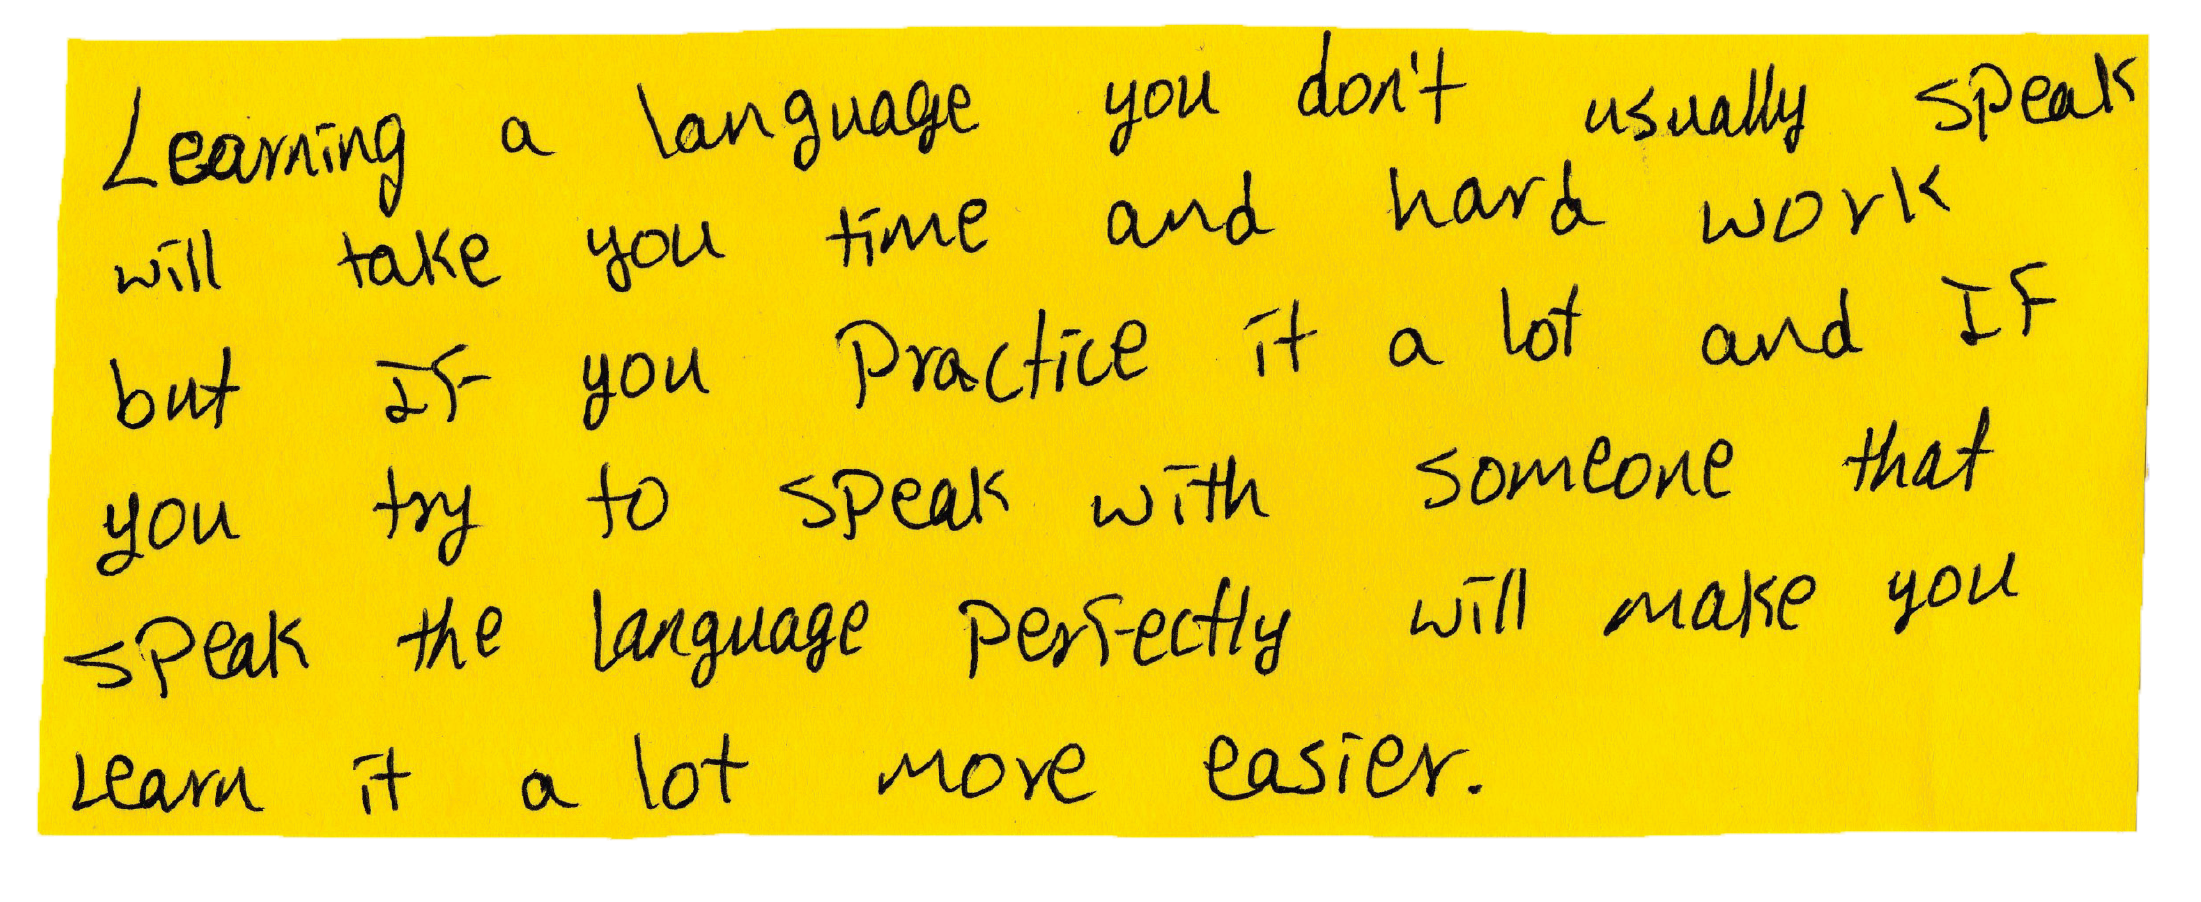 Learning a language you don't usually speak
will take you time and hard work
but IF you Practice it a lot and IF
you try to speak with someone that
speak the language perfectly will make you
learn it a lot more easier.